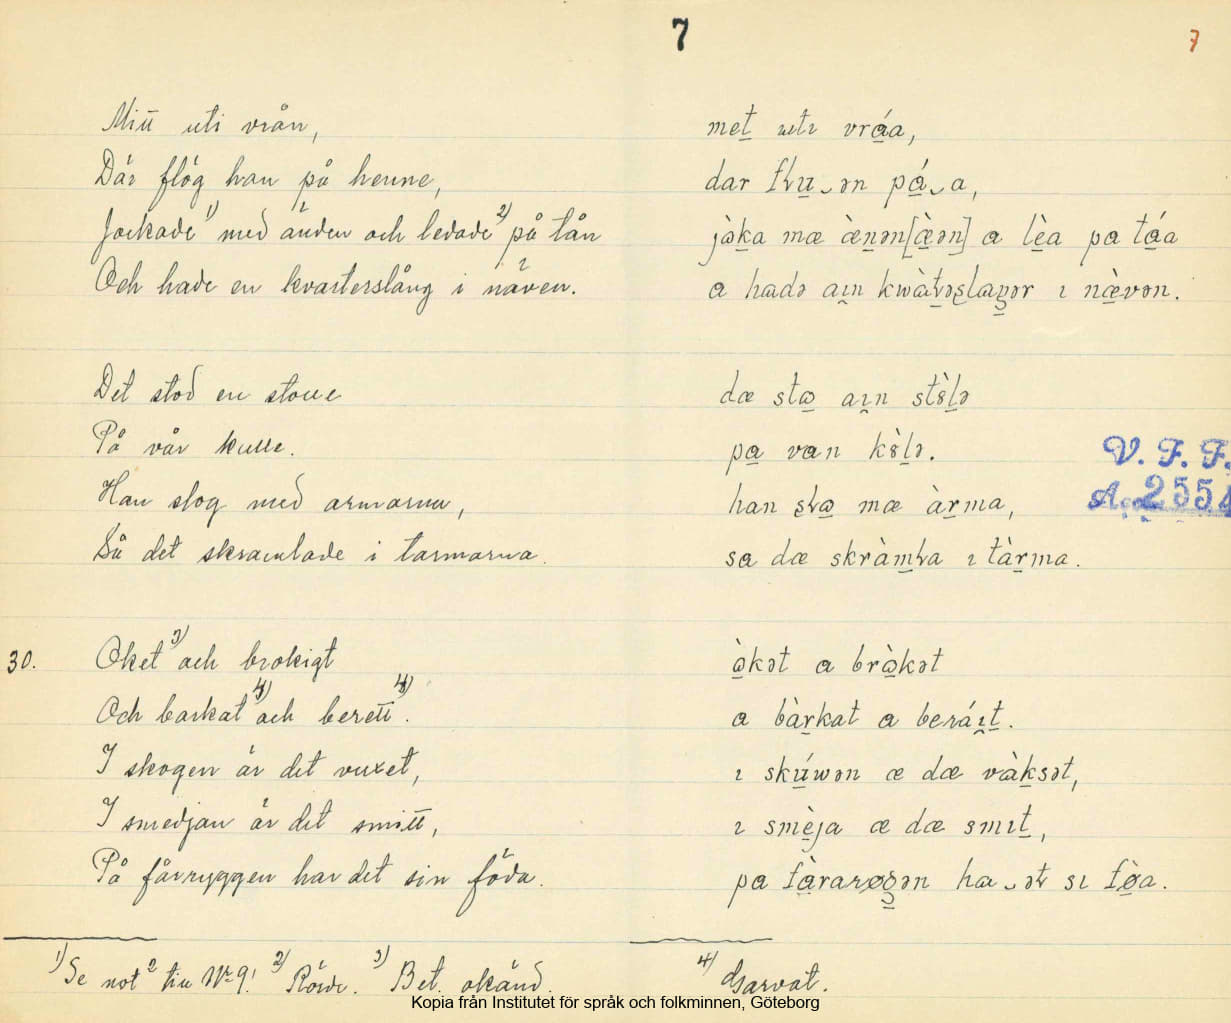 7
7
Mitt uti vrån,
Där flög han på henne,
Jockade 1) med änden och ledade 2) på tån
Och hade en kvarterslång i näven.
Det stod en stolle
På vår kulle.
Han slog med armarna,
Så det skramlade i tarmarna.
30. Oket 3) och brokigt
Och barkat 4) och berett 4).
I skogen är det vuxet,
I smedjan är det smitt,
På fårryggen har det sin föda.
1) Se not 2 till Nr 9! 2) Rörde. 3) Bet. okänd.
met̲ ɯtɪ vrá̲a,
dar fɽu̲‿ən pá̲‿a,
jɷ̀k̲a mæ æ̀n̲ən[æ̲̀ən] a lè̲a pa tá̲a
a hadə aɪ̯n kwàt̲əʂlaŋ̲ər ɪ næ̲̀vən.
dæ stɷ̲ aɪ̯n stɞ̀l̲ə
pa̲ van kɞ̀l̲ə.
han ʂɽɷ̲ mæ àr̲ma,
sa dæ skràm̲ɽa ɪ tàr̲ma.
ɷ̲̀kət a brɷ̲̀kət
a bàr̲kat a beráɪ̯t̲.
ɪ skú̲wən æ dæ vàk̲sət,
ɪ smè̲ja æ dæ smɪt̲,
pa fà̲rarøg̲ən ha‿əɽ sɪ fø̲̀a.
4) Garvat.
V. F. F.
Kopia från Institutet för språk och folkminnen, Göteborg